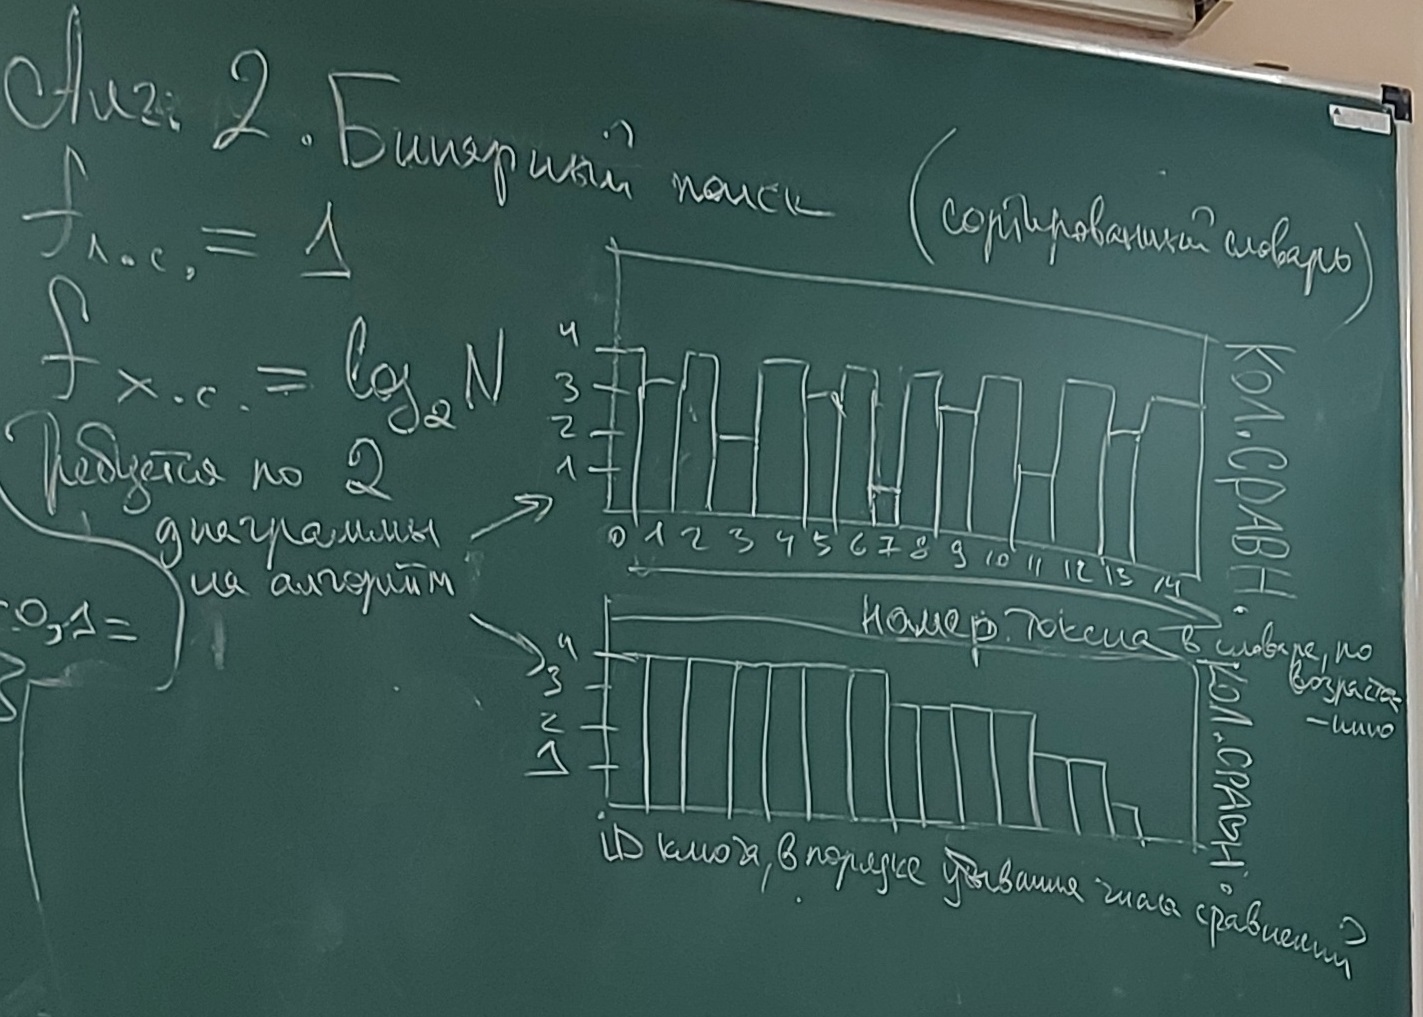 Алг. 2. Бинарный поиск (сортированный словарь)
f л.с. = 1
f х.с. = log₂N
Требуется по 2
диаграммы
на алгоритм
0,1=
4
3
2
1
0 1 2 3 4 5 6 7 8 9 10 11 12 13 14
КОЛ.СРАВН.
Номер. токена в словаре, по
возраста-
-нию
4
3
2
1
КОЛ.СРАВН.
ID ключа, в порядке убывания числа сравнений